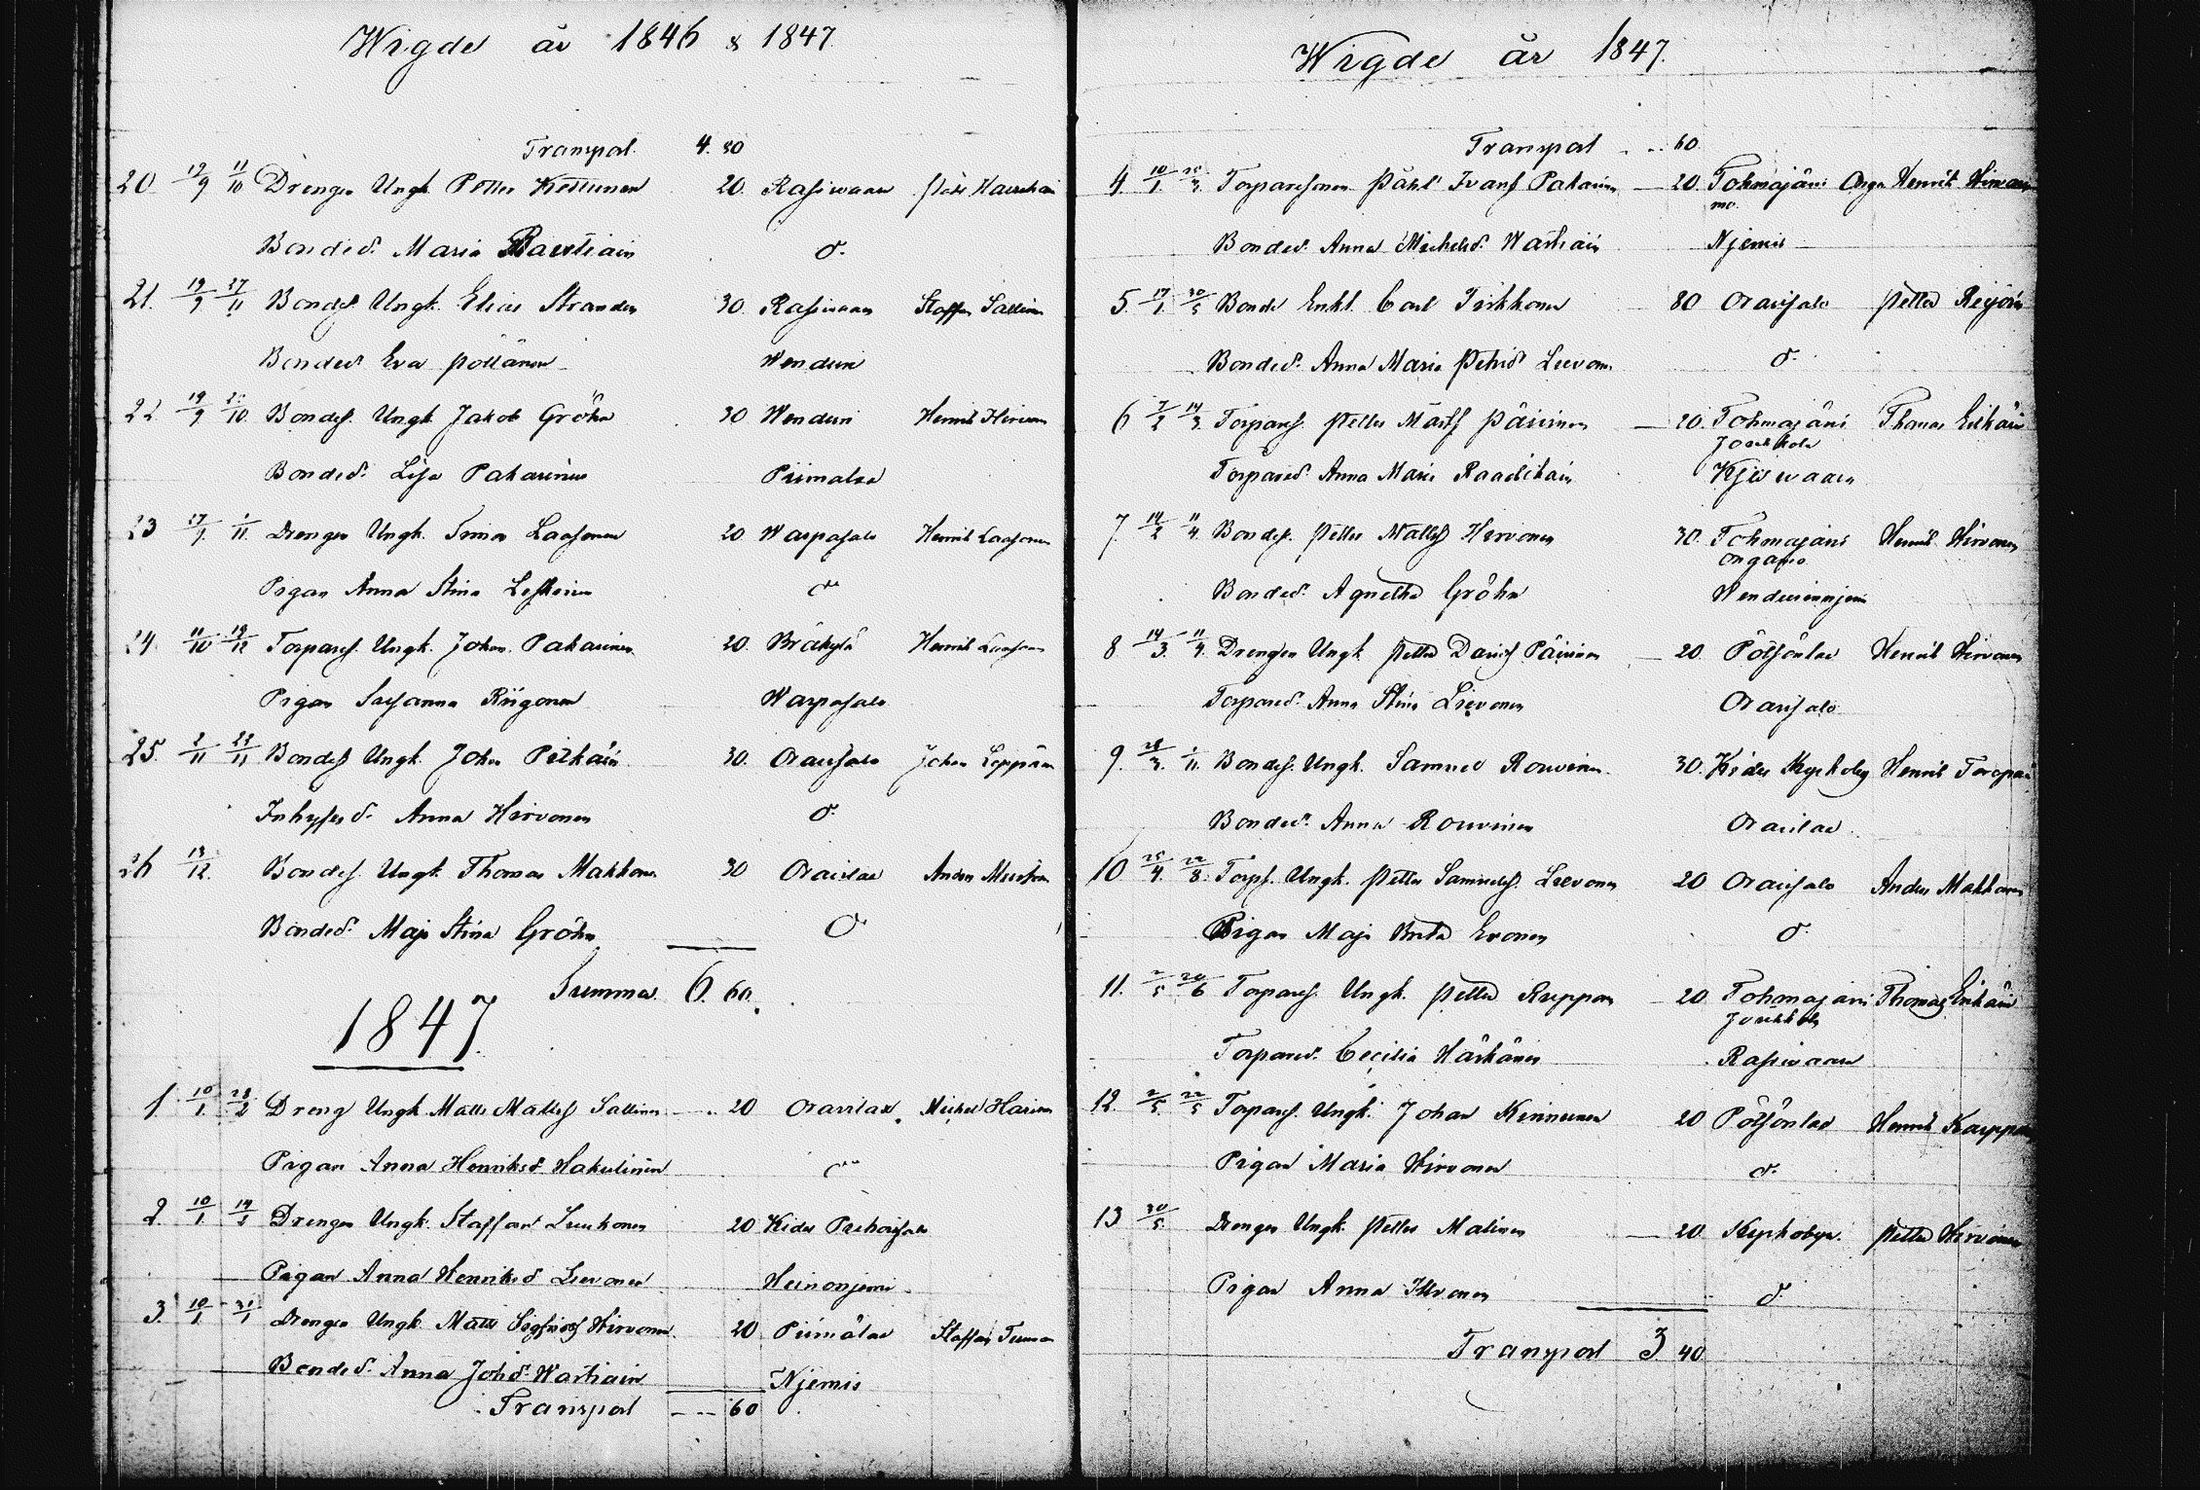 Wigde år 1846 & 1847.
Transport. 4. 80
20 19/9 11/10 Drengen Ungk. Petter Kettunen 20. Rasiwaara
Bonded. Maria Rautiain d:o
21. 19/9 27/11 Bondes. Ungk. Elias Strandén 30. Rasiwaara Staffan Sallinen
Bonded. Eva Pöllänen Wendun
22 19/9 10. Bondes. Ungk. Jakob Gröhn 30 Wenduri Henrik Hirvonen
Bonded. Lisa Pakarinen Piimälax
23 17/9. 1/11. Drengen Ungk. Simon Laasonen 20 Warpasalo Henrik Laasonen
Pigan Anna Stina Leskinen d:o
24. 11/10 19/12 Torpares. Ungk. Johan Pakarinen 20. Bräkylä Henrik Laasonen
Pigan Susanna Riigonen Warpasalo
25. 2/11 23/11 Bondes Ungk. Johan Pitkäin 30. Oravisalo Johan Leppänen
Inhyses d. Anna Hirvonen d:o
26 13/12. Bondes. Ungk. Thomas Makkonen 30 Oravilax Anders Mustonen
Bonded. Maja Stina Gröhn d:o
Summa. 6. 60.
1847.
1 10/1 28/2 Dreng Ungk. Matts Mattss Sallinen 20 Oravilax Michel Harinen
Pigan Anna Henriksd. Hakulinen d:o
2. 10/1 14/3 Drengen Ungk. Staffan Luukonen 20 Kides Puhossalo
Pigan Anna Henriksd Lievonen Heinonjemi
3. 10/1 31/1 Drengen Ungk. Matts Sigfrids Hirvonen. 20. Piimälax Staffan Turunen
Bonded. Anna Johsd. Wartiain Njemis
Transport 60
Wigde år 1847.
Transport 60.
4. 10/1 25/3 Torparesonen Påhl Ivans Pakarinen 20. Tohmajärvi Onga Henrik Hirvonen
mo
Bonded. Anna Michelsd. Wartiain Njemis
5. 17/1 30/5 Bonde Enkl. Carl Tirkkonen 80 Oravisalo Petter Reijonen
Bonded. Anna Maria Petrisd Lievonen d:o
6 7/2 14/3 Torpares. Petter Märts Päivinen 20. Tohmajärvi Thomas Eskäin
Jouhkola
Torpared. Anna Maria Raadikain Kjöswaara
7. 14/2 11/4 Bondes. Petter Mattss Hirvonen 30. Tohmajärvi Henrik Hirvonen
Ongamo
Bonded. Agnetha Gröhn Wendurinnjemi
8 14/3 11/4 Drengen Ungk. Petter Davids Päivinen 20. Pötsönlax Henrik Hirvonen
Torpared. Anna Stina Lievonen Oravisalo
9. 28/3. 1/11. Bondes. Ungk. Samuel Rouvinen 30. Kides Kyrkoby Henrik Toropain
Bonded. Anna Rouvinen Oravilax
10 25/4. 22/8. Torps. Ungk. Petter Samuels. Lievonen 20 Oravisalo Anders Makkonen
Pigan Maja Brita Evonen d:o
11. 2/5 20/6 Torpares. Ungk. Petter Ruppon 20. Tohmajärvi Thomas Eskäin
Jouhkola
Torpared. Cecilia Härkönen Rasiwaara
12. 2/5. 22/5 Torpares. Ungk. Johan Kinnunen 20 Pötsönlax Henrik Karppan
Pigan Maria Hirvonen d:o
13 30/5. Drengen Ungk. Petter Malinen 20. Kyrkobyn. Petter Hirvonen
Pigan Anna Hirvonen d:o
Transport 3. 40